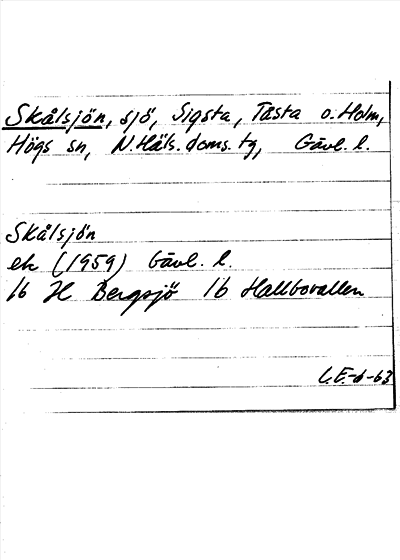 Skålsjön, sjö, Sigsta, Tåsta o. Holm,
Högs sn, N. Häls. doms. tg, Gävl. l.
Skålsjön
ek (1959) Gävl. l.
16 H Bergsjö 1b Hallbovallen
L.E.-6-63